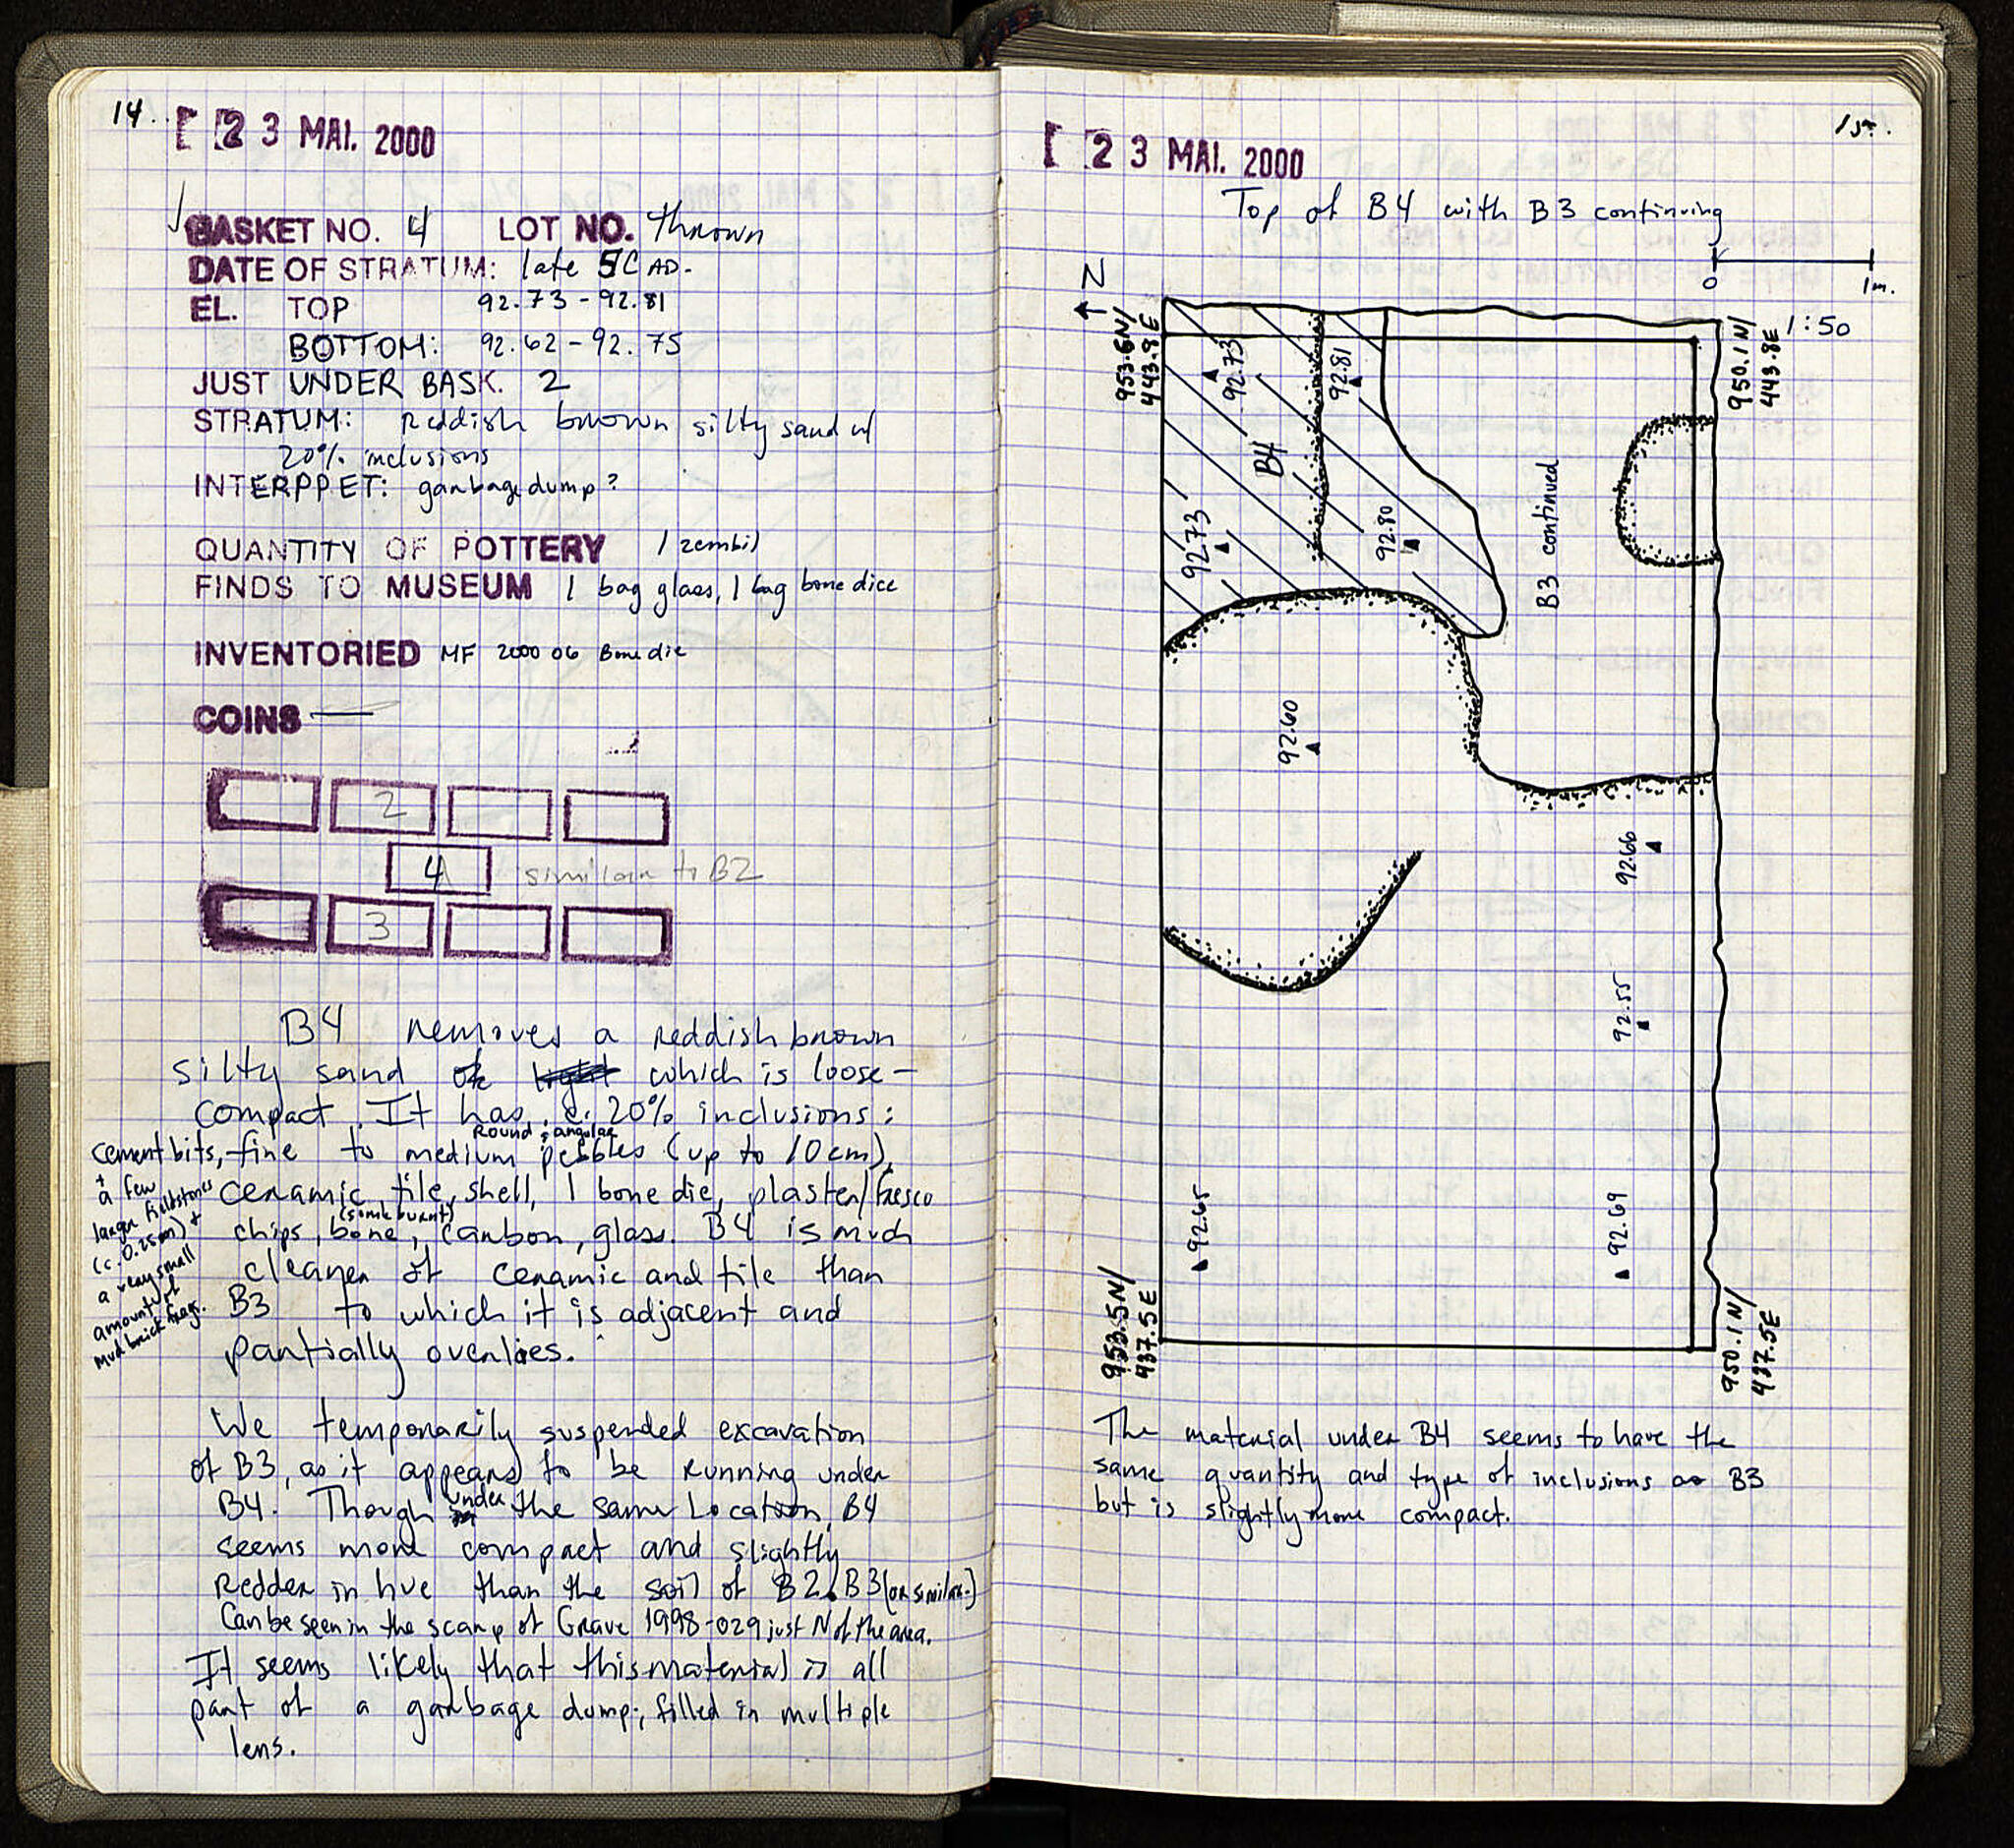 14.
[ 2 3 MAI. 2000
BASKET NO. 4 LOT NO. thrown
DATE OF STRATUM: late 5C AD.
EL. TOP 92.73 - 92.81
BOTTOM: 92.62 - 92.75
JUST UNDER BASK. 2
STRATUM: Reddish brown silty sand w/
20% inclusions
INTERPPET: garbage dump?
QUANTITY OF POTTERY 1 zembil
FINDS TO MUSEUM 1 bag glass, 1 bag bone dice
INVENTORIED MF 2000 06 Bone die
COINS —
2
4 similar to B2
3
B4 removes a reddish brown
silty sand which is loose -
compact. It has c. 20% inclusions:
Round & angular
cement bits, fine to medium pebbles (up to 10 cm),
ceramic, tile, shell, 1 bone die, plaster/fresco
(some burnt)
chips, bone, carbon, glass. B4 is much
cleaner of ceramic and tile than
B3 to which it is adjacent and
partially overlies.
+
a few
larger fieldstones
(c. 0.25m) +
a very small
amount of
mud brick frags.
We temporarily suspended excavation
of B3, as it appears to be running under
B4. Though under the same location, B4
seems more compact and slightly
redder in hue than the soil of B2. B3 [or similar]
Can be seen in the scarp of Grave 1998-029 just N of the area.
It seems likely that this material is all
part of a garbage dump; filled in multiple
lens.
15.
[ 2 3 MAI. 2000
Top of B4 with B3 continuing
N
0 1m.
1:50
953.6N/
443.8E
950.1N/
443.8E
92.73
92.81
B4
92.73
92.80
B3 continued
92.60
92.66
92.55
92.65
92.69
953.5N/
437.5E
950.1N/
437.5E
The material under B4 seems to have the
same quantity and type of inclusions as B3
but is slightly more compact.